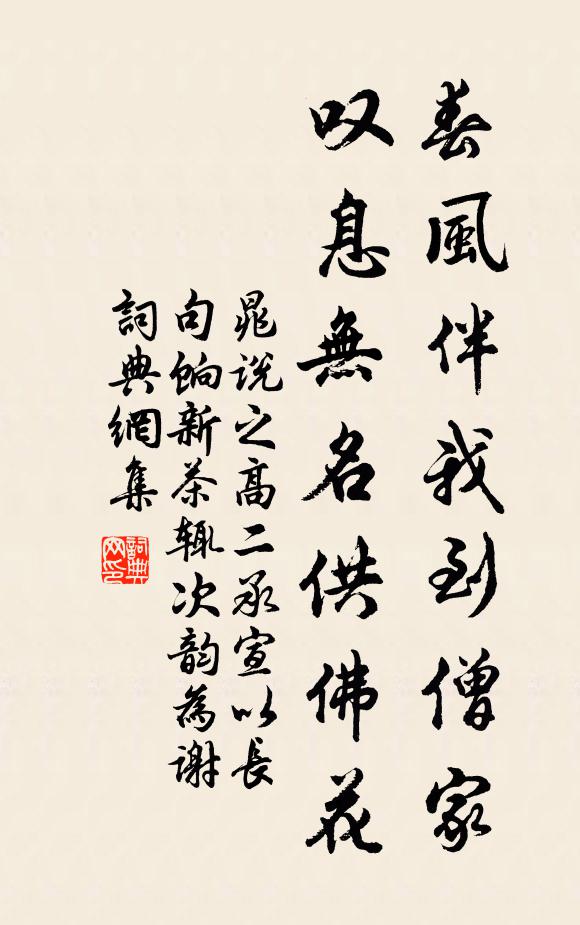 春風伴我到僧家
叹息無名供佛花
晁说之高二承宣以長
句餉新茶辄次韵為谢
詞典網集
詞典网印